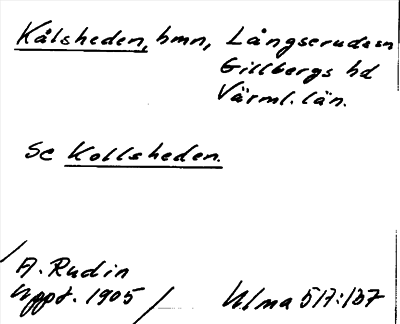 Kålsheden, hmn, Långseruds sn
Gillbergs hd
Värml. län.
Se Kollsheden.
A. Rudin
Uppt. 1905
Ulma 517:137